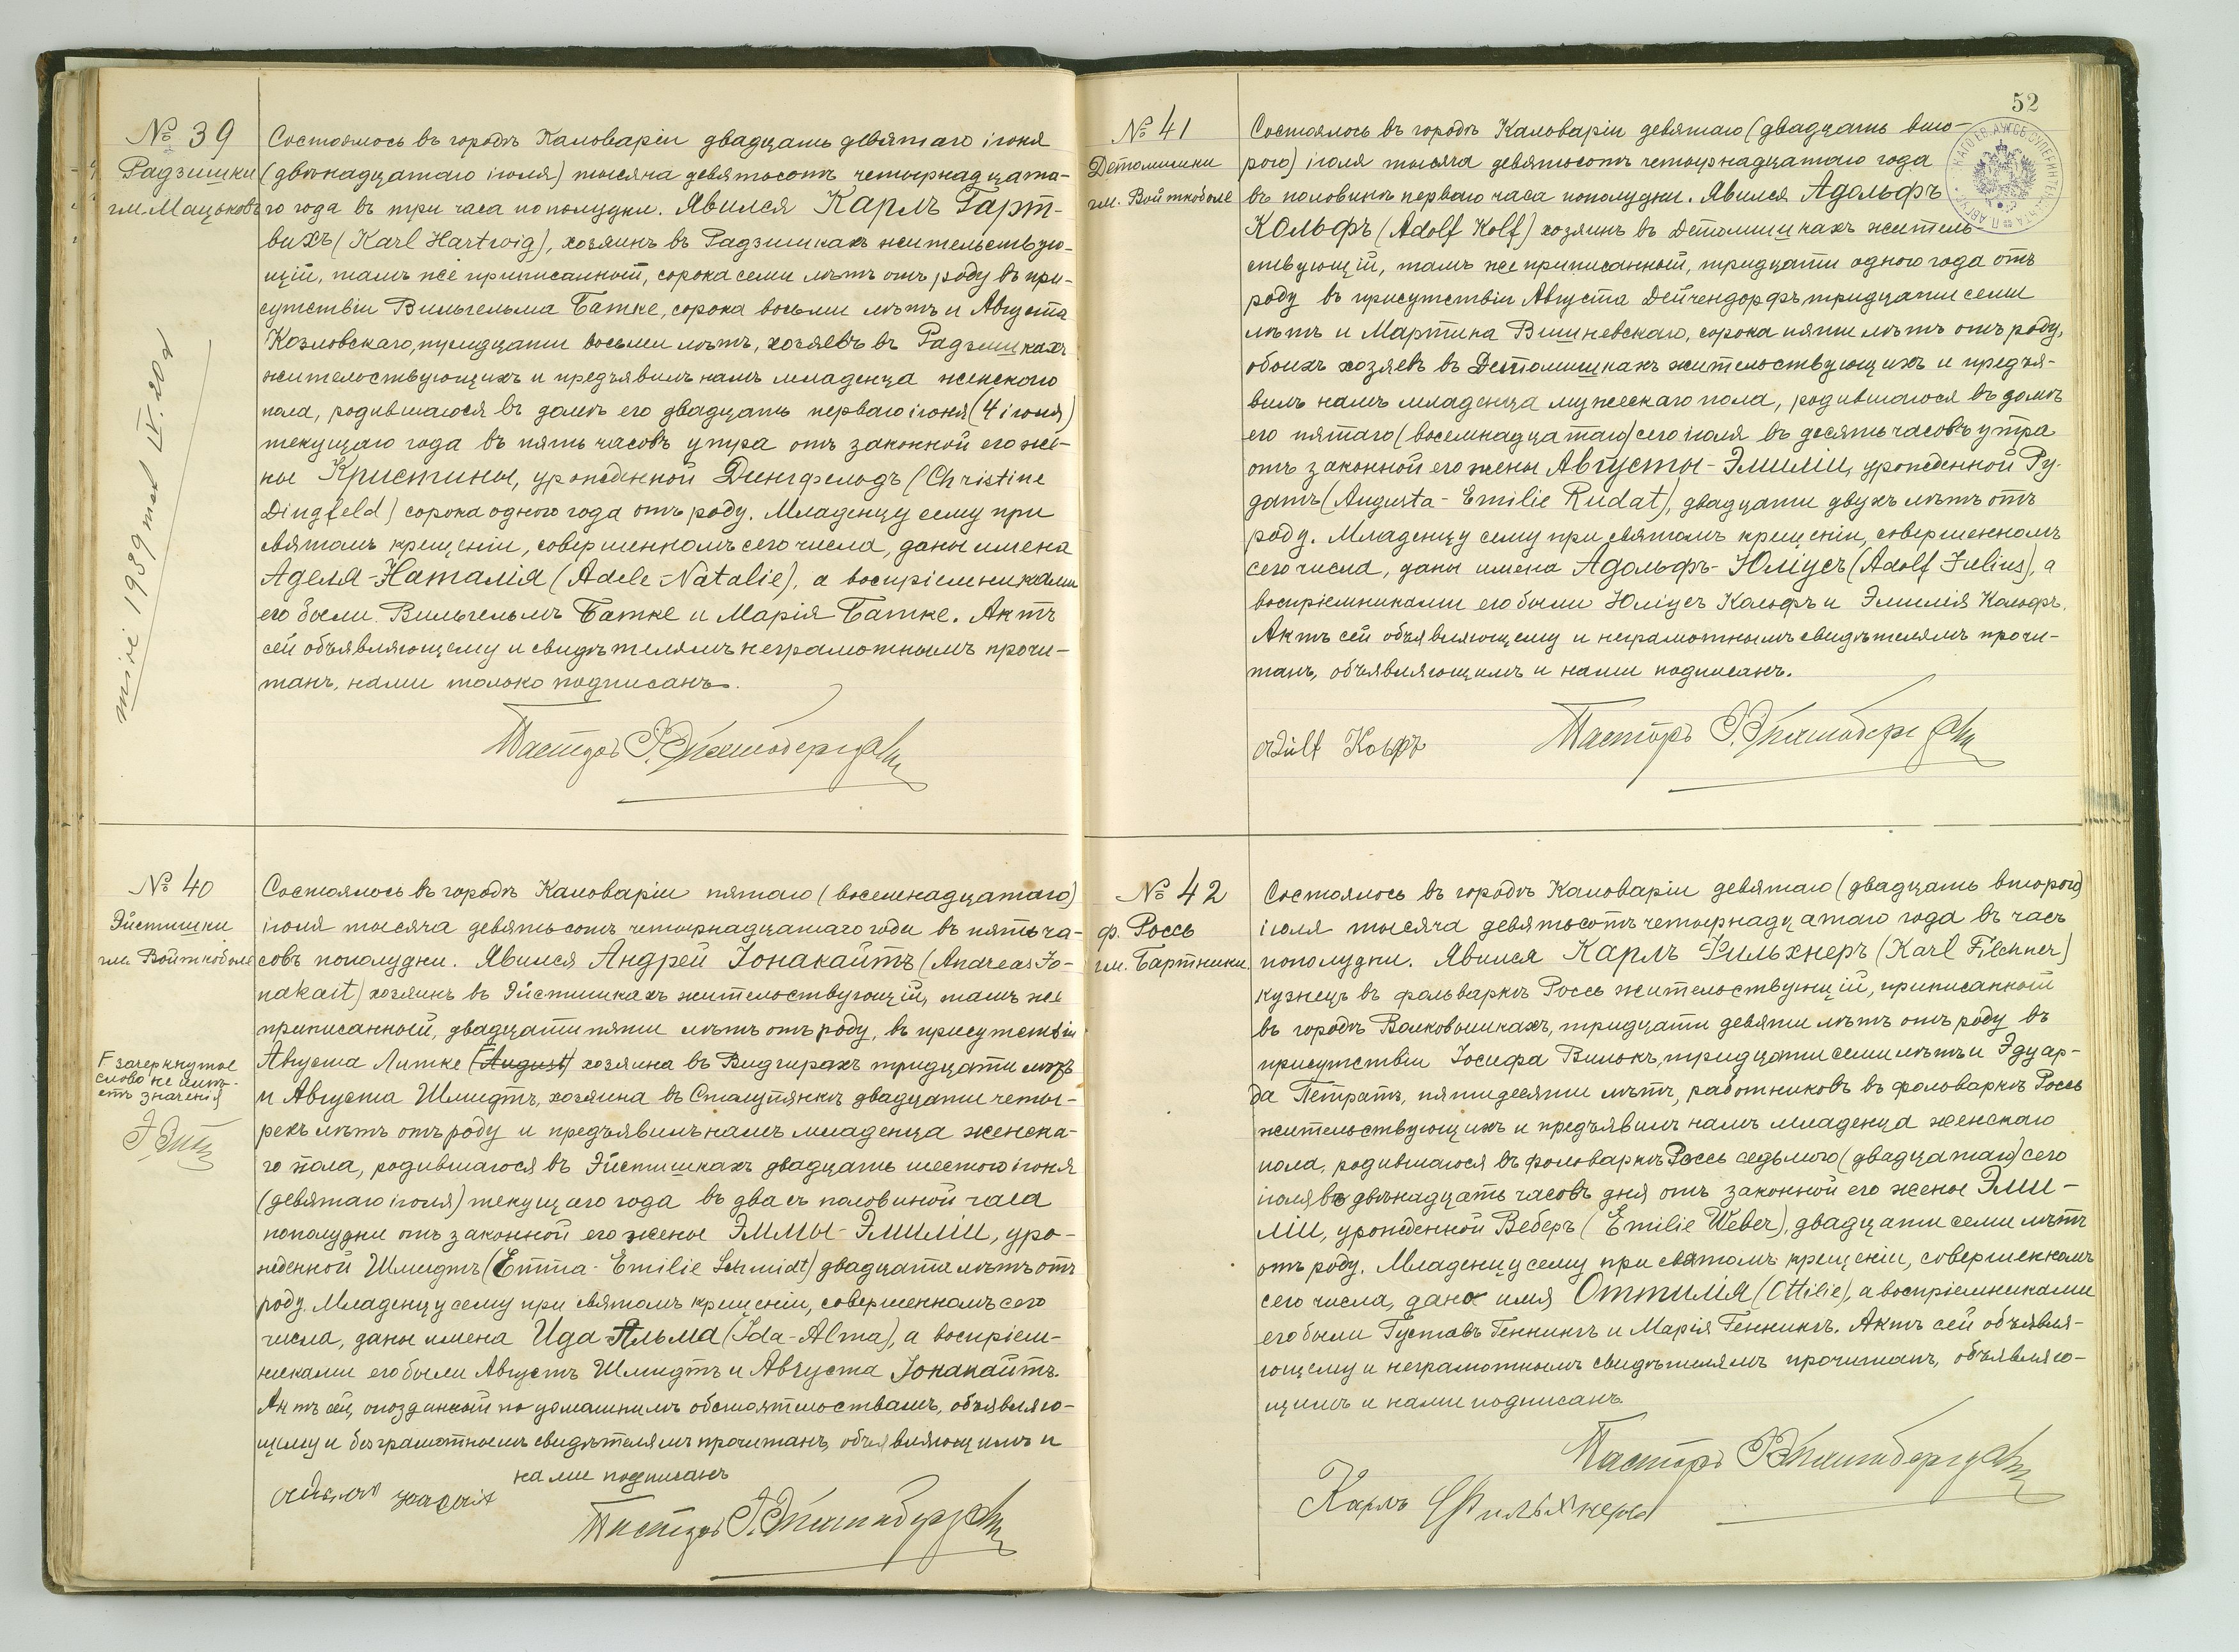 № 39
Радзишки
гм. Мацьковъ
Состоялось въ городѣ Кальваріи двадцать девятаго іюня
(двѣнадцатаго іюля) тысяча девятьсотъ четырнадцата-
го года въ три часа пополудни. Явился Карлъ Гарт-
вихъ (Karl Hartwig), хозяинъ въ Радзишкахъ жительствую-
щій, тамъ же приписанный, сорока семи лѣтъ отъ роду въ при-
сутствіи Вильгельма Батке, сорока восьми лѣтъ и Августа
Козловскаго, тридцати восьми лѣтъ, хозяевъ въ Радзишкахъ
жительствующихъ и предъявилъ намъ младенца женскаго
пола, родившагося въ домѣ его двадцать перваго іюня (4 іюля)
текущаго года въ пять часовъ утра отъ законной его же-
ны Кристины, урожденной Дингфельдъ (Christine
Dingfeld) сорока одного года отъ роду. Младенцу сему при
святомъ крещеніи, совершенномъ сего числа, даны имена
Аделя-Наталія (Adele-Natalie), а воспріемниками
его были Вильгельмъ Батке и Марія Батке. Актъ
сей объявляющему и свидѣтелямъ неграмотнымъ прочи-
танъ, нами только подписанъ.
Пасторъ
1939 IV. 20
№ 40
Эйстишки
гм. Войткобole
Состоялось въ городѣ Кальваріи пятаго (восемнадцатаго)
іюля тысяча девятьсотъ четырнадцатаго года въ пять ча-
совъ пополудни. Явился Андрей Іонакайтъ (Andreas Jo-
nakait) хозяинъ въ Эйстишкахъ жительствующій, тамъ же
приписанный, двадцати пяти лѣтъ отъ роду, въ присутствіи
Августа Литке (August) хозяина въ Видгирахъ тридцати лѣтъ
и Августа Шмидтъ, хозяина въ Сталупянкѣ двадцати четы-
рехъ лѣтъ отъ роду и предъявилъ намъ младенца женска-
го пола, родившагося въ Эйстишкахъ двадцать шестого іюня
(девятаго іюля) текущаго года въ два съ половиной часа
пополудни отъ законной его жены Эммы-Эмиліи, уро-
жденной Шмидтъ (Emma-Emilie Schmidt) двадцати лѣтъ отъ
роду. Младенцу сему при святомъ крещеніи, совершенномъ сего
числа, даны имена Ида Альма (Ida-Alma), а воспріем-
никами его были Августъ Шмидтъ и Августа Іонакайтъ.
Актъ сей, опозданный по домашнимъ обстоятельствамъ, объявляю-
щему и безграмотнымъ свидѣтелямъ прочитанъ, объявляющимъ и
нами подписанъ
Пасторъ
зачеркнутое
слово не имѣ-
етъ значенія
52
№ 41
Детомишки
гм. Войткобole
Состоялось въ городѣ Кальваріи девятаго (двадцать вто-
рого) іюля тысяча девятьсотъ четырнадцатаго года
въ половинѣ перваго часа пополудни. Явился Адольфъ
Кольфъ (Adolf Kolf) хозяинъ въ Детомишкахъ житель-
ствующій, тамъ же приписанный, тридцати одного года отъ
роду въ присутствіи Августа Дейчендорфъ тридцати семи
лѣтъ и Мартина Вишневскаго, сорока пяти лѣтъ отъ роду,
обоихъ хозяевъ въ Детомишкахъ жительствующихъ и предъя-
вилъ намъ младенца мужескаго пола, родившагося въ домѣ
его пятаго (восемнадцатаго) сего іюля въ десять часовъ утра
отъ законной его жены Августы-Эмиліи, урожденной Ру-
датъ (Augusta-Emilie Rudat), двадцати двухъ лѣтъ отъ
роду. Младенцу сему при святомъ крещеніи, совершенномъ
сего числа, даны имена Адольфъ-Юліусъ (Adolf Julius), а
воспріемниками его были Юліусъ Кольфъ и Эмилія Кольфъ.
Актъ сей объявляющему и неграмотнымъ свидѣтелямъ прочи-
танъ, объявляющимъ и нами подписанъ.
Кольфъ
Пасторъ
№ 42
ф. Россь
гм. Бартники
Состоялось въ городѣ Кальваріи девятаго (двадцать второго)
іюля тысяча девятьсотъ четырнадцатаго года въ часъ
пополудни. Явился Карлъ Фильхнеръ (Karl Filchner)
кузнецъ въ фольваркѣ Россь жительствующій, приписанный
въ городѣ Волковышкахъ, тридцати девяти лѣтъ отъ роду въ
присутствіи Іосифа Вилокъ, тридцати семи лѣтъ и Эдуар-
да Петратъ, пятидесяти лѣтъ, работниковъ въ фольваркѣ Россь
жительствующихъ и предъявилъ намъ младенца женскаго
пола, родившагося въ фольваркѣ Россь седьмого (двадцатаго) сего
іюля въ двѣнадцать часовъ дня отъ законной его жены Эми-
ліи, урожденной Веберъ (Emilie Weber), двадцати семи лѣтъ
отъ роду. Младенцу сему при святомъ крещеніи, совершенномъ
сего числа, дано имя Оттилія (Ottilie), а воспріемниками
его были Густавъ Геннингъ и Марія Геннингъ. Актъ сей объявля-
ющему и неграмотнымъ свидѣтелямъ прочитанъ, объявляю-
щимъ и нами подписанъ.
Пасторъ
Карлъ Фильхнеръ